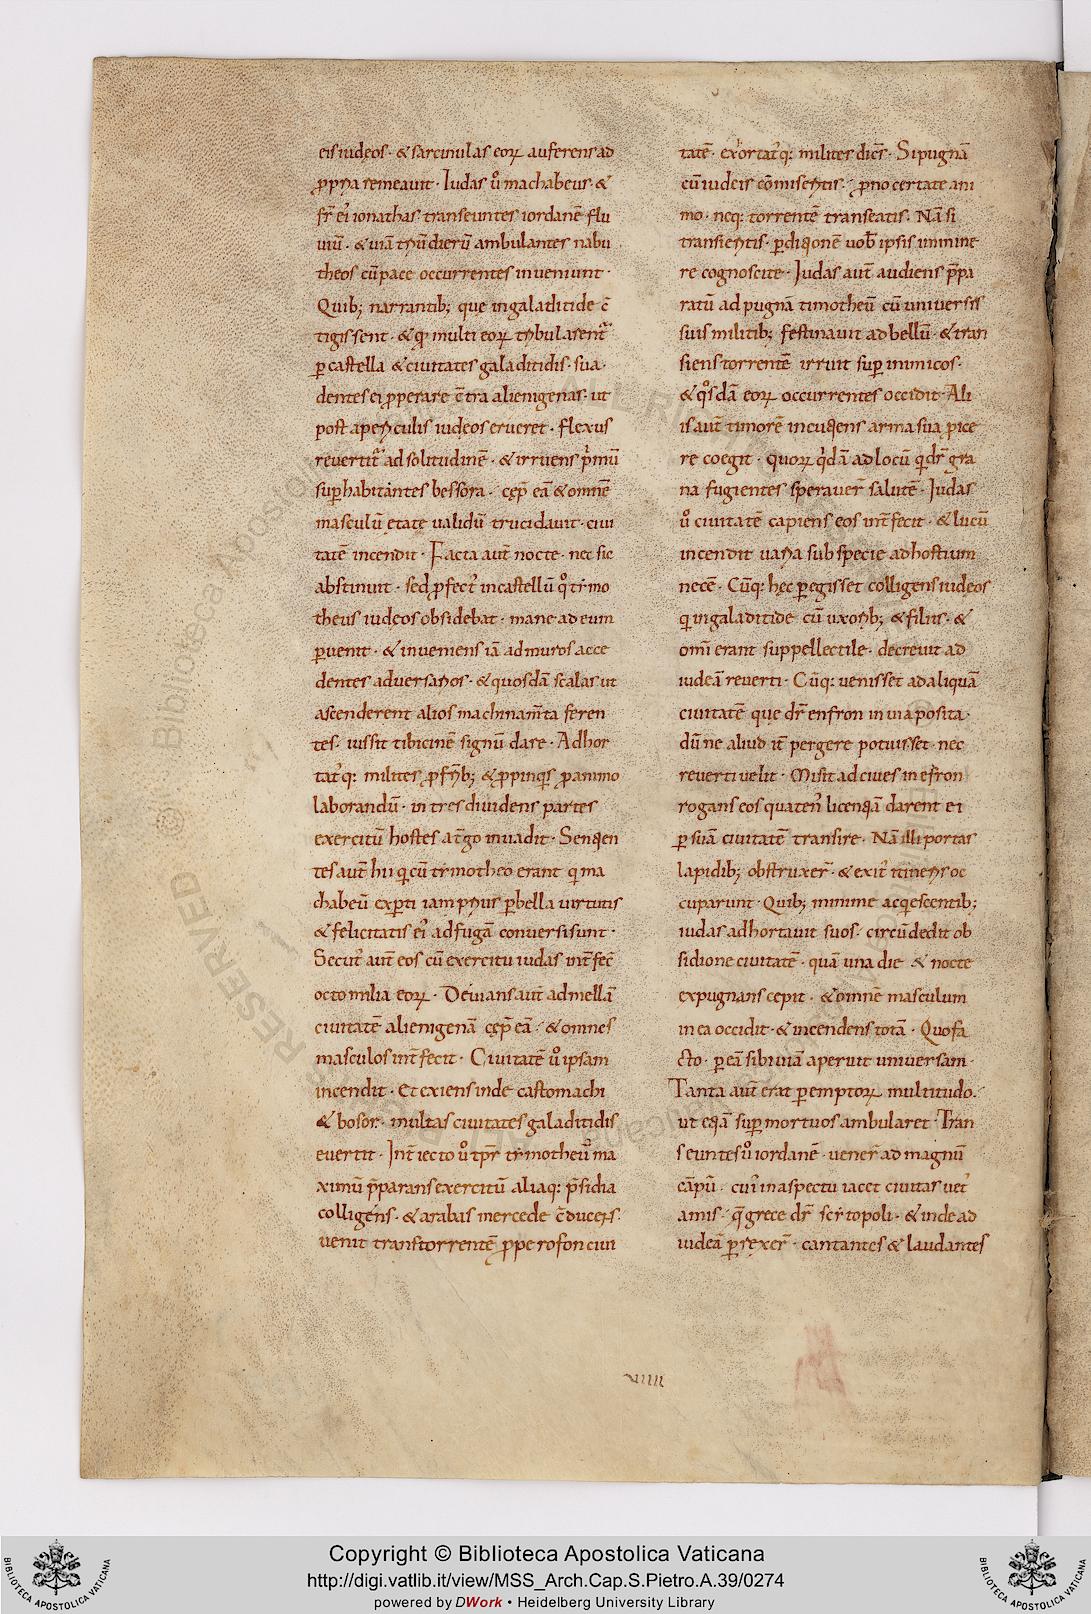 eis iudęos · & sarcinulas eoꝝ auferens ad
ꝓpria remeauit · Iudas u͛o machabeus · &
fr̄ ei᷒ ionathas transeuntes iordanē flu
uiū · & uiā triū dierū ambulantes nabu
theos cū pace occurrentes inueniunt ·
Quib; narrantib; que in galatitide c̄
tigissent · & qđ multi eoꝝ tribularent᷑
ꝑ castella & ciuitates galaditidis · sua
dentes ei ꝓperare c̄tra alienigenas · ut
post a periculis iudęos erueret · Flexus
reuertit᷑ ad solitudinē · & irruens p̓mū
suꝑ habitantes bessora · cep̄ eā & omnē
masculū etate ualidū trucidauit · ciui
tatē incendit · Facta aut̄ nocte · nec sic
abstinuit · sed ꝓfect᷒ in castellū q̊ timo
theus iudęos obsidebat · mane ad eum
ꝑuenit · & inueniens iā ad muros acce
dentes aduersarios · & quosdā scalas ut
ascenderent alios machinam̄ta feren
tes · iussit tibicinē signū dare · Adhor
tat᷒q: milites ꝓ frīb; & ꝓpinqis ꝓ animo
laborandū · in tres diuidens partes
exercitū hostes a t̄go inuadit · Sentien
tes aut̄ hii qi cū timotheo erant qi ma
chabeū exꝑti iam prius ꝑ bella uirtutis
& felicitatis ei᷒ ad fugā conuersi sunt ·
Secut᷒ aut̄ eos cū exercitu iudas int̄fec̄
octo milia eoꝝ · Deuians aut̄ ad mellā
ciuitatē alienigenā cęp̄ eā · & omnes
masculos int̄fecit · Ciuitatē u͛o ipsam
incendit · Et exiens inde castomachi
& bosor · multas ciuitates galaditidis
euertit · Int̄iecto u͛o tp̄r timotheu᷒ ma
ximū p̄parans exercitū aliaq: p̄sidia
colligens · & arabas mercede c̄ducens ·
uenit trans torrentē ꝓpe rofon ciui
tatē · exortat᷒q: milites dicēs · Si pugnā
cū iudeis cōmiseritis · ꝓno certate ani
mo · neq: torrentē transeatis · Nā si
transieritis · ꝑditionē uob̄ ipsis immine
re cognoscite · Iudas aut̄ audiens p̄pa
ratū ad pugnā timotheū cū uniuersis
suis militib; festinauit ad bellū · & tran
siens torrentē irruit suꝑ inimicos ·
& q̊sdā eoꝝ occurrentes occidit · Ali
is aut̄ timorē incutiens arma sua ꝓice
re coegit · quoꝝ qidā ad locū qi dr̄ gra
na fugientes sperauer̄ salutē · Iudas
u͛o ciuitatē capiens eos int̄fecit · & lucū
incendit uaria sub specie ad hostium
necē · Cūq: hęc ꝑegisset colligens iudęos
qi in galaditide cū uxorib; & filiis · &
omī erant suppellectile · decreuit ad
iudeā reuerti · Cūq: uenisset ad aliquā
ciuitatē que dr̄ enfron in uia posita ·
dū ne aliud it̄ pergere potuisset · nec
reuerti uelit · Misit ad ciues in efron
rogans eos quaten᷒ licentiā darent ei
ꝑ suā ciuitatē transire · Nā illi portas
lapidib; obstruxer̄ · & exit᷒ itineris oc
cuparunt · Quib; minime acqiescentib;
iudas adhortauit suos · circūdedit ob
sidione ciuitatē · quā una die & nocte
expugnans cepit · & omnē masculum
in ea occidit · & incendens totā · Quo fa
cto · ꝑ eā sibi uiā aperuit uniuersam ·
Tanta aut̄ erat ꝑemptoꝝ multitudo ·
ut etiā suꝑ mortuos ambularet · Tran
seuntes u͛o iordanē · uener̄ ad magnū
cāpū · cui᷒ in aspectu iacet ciuitas uet᷒
amis · q̄ grece dr̄ scitopoli · & inde ad
iudeā ꝑrexer̄ · cantantes & laudantes
viiii
Copyright © Biblioteca Apostolica Vaticana
http://digi.vatlib.it/view/MSS_Arch.Cap.S.Pietro.A.39/0274
powered by DWork • Heidelberg University Library